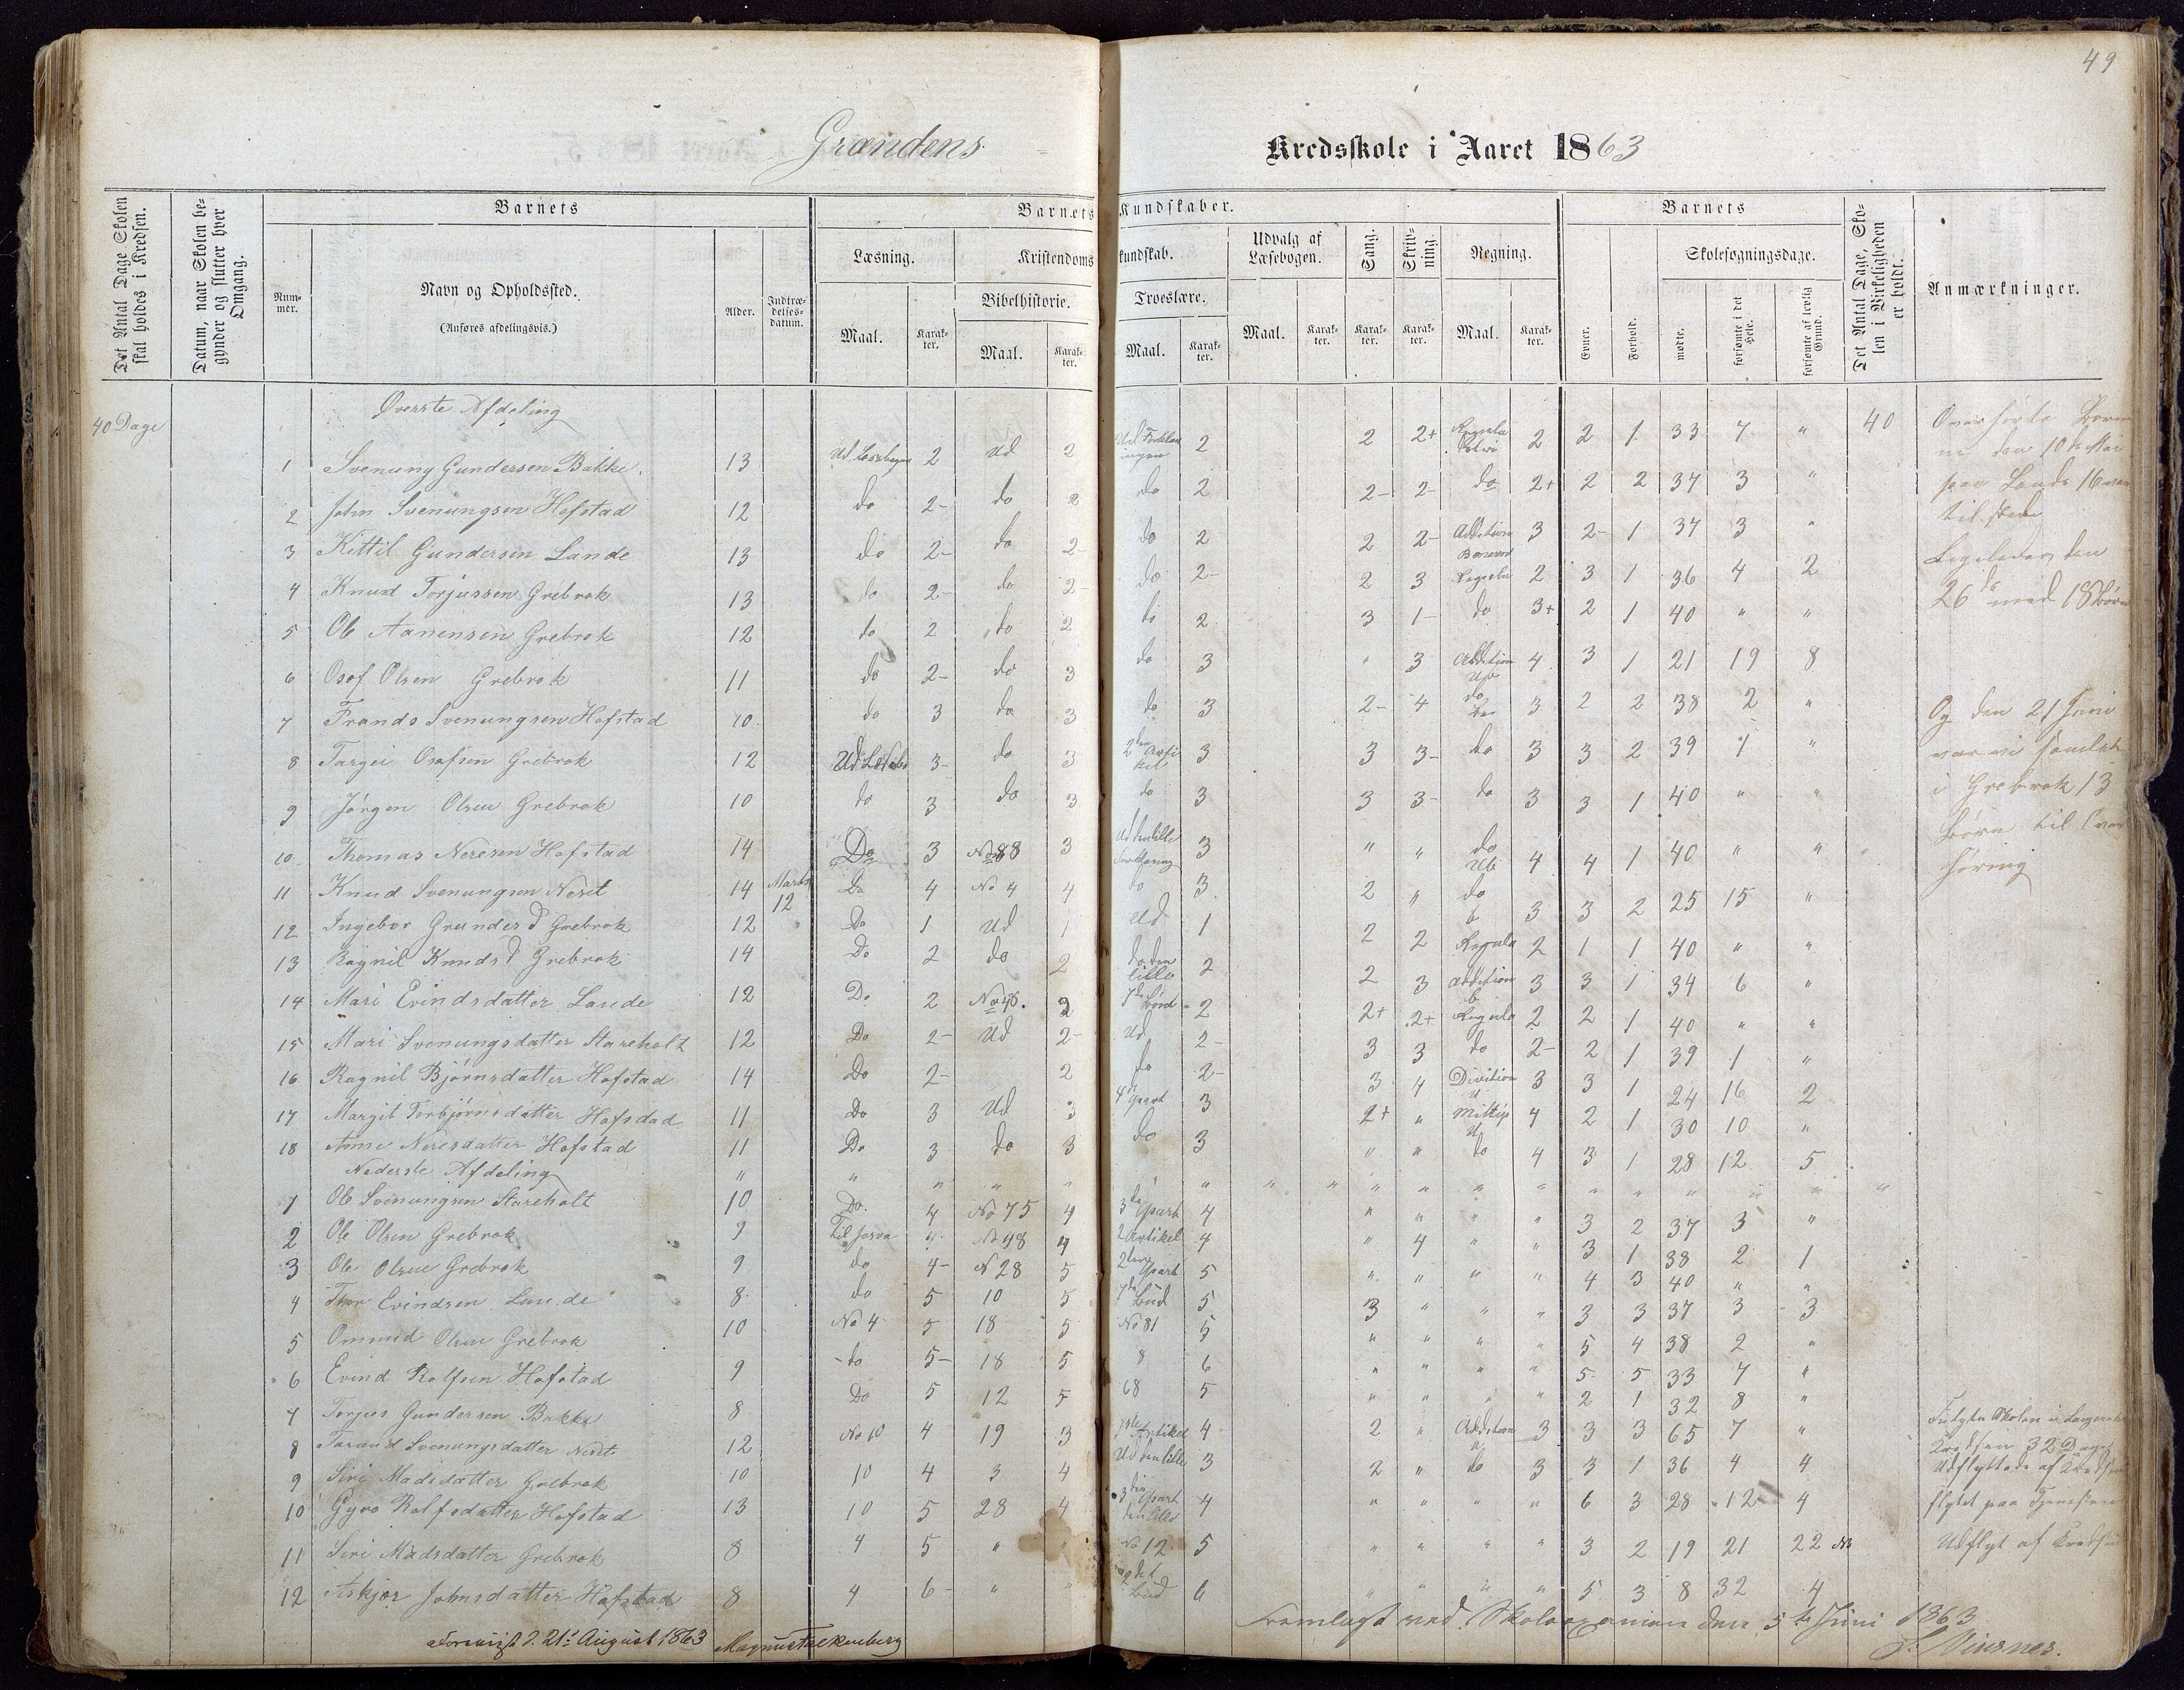 49
Grændens
Kredsskole i Aaret 1863
Det Antal Dage Skolen skal holdes i Kredsen.
Datum, naar Skolen begynder og slutter hver Omgang.
Barnets
Nummer.
Navn og Opholdssted.
(Anføres afdelingsvis.)
Alder.
Indtrædelsesdatum.
Barnets Kundskaber.
Læsning.
Kristendomskundskab.
Udvalg af Læsebogen.
Sang.
Skrivning.
Regning.
Bibelhistorie.
Troeslære.
Maal. Karakter. Maal. Karakter. Maal. Karakter. Maal. Karakter. Karakter. Karakter. Maal. Karakter.
Barnets
Evner. Forhold.
Skolesøgningsdage.
mødte. forsømte i det Hele. forsømte af lovlig Grund.
Det Antal Dage, Skolen i Virkeligheden er holdt.
Anmærkninger.
40 Dage
Øverste Afdeling
1 Svenung Gundersen Bakke. 13 Ud Læsebogen 2 Ud 2 2 2 2+ Regula 2 2 1 33 7 " 40
2 John Svenungsen Hofstad 12 do 2- do 2 do 2 2- 2- do 2+ 2 2 37 3 "
3 Kittil Gundersen Lande 13 do 2- do 2- do 2 2 2- Addition 3 2- 1 37 3 "
4 Knud Torjussen Grebrok 13 do 2- do 2- do 2- 2 3 Regula 2 3 1 36 4 2
5 Ole Aanensen Grebrok 12 do 2 do 2 do 2 3 1- do 3+ 2 1 40 " "
6 Osof Olsen Grebrok 11 do 2- do 3 do 3 " 3 Addition 4 3 1 21 19 8
7 Frands Svenungsen Hofstad 10 do 3 do 3 do 3 2- 4 do 3 2 2 38 2 "
8 Targei Osofsen Grebrok 12 3- do 3 2den Artikel 3 3 3- do 3 3 2 39 1 "
9 Jørgen Olsen Grebrok 10 do 3 do 3 do 3 3 3- do 3 3 1 40 " "
10 Thomas Neresen Hofstad 14 Do 3 No 88 3 Ud den lille 3 " " do 4 4 1 40 " "
11 Knud Svenungsen Neset 14 Marts 12 Do 4 No 4 4 do 3 2 " do 3 3 2 25 15 "
12 Ingebor Grunders d Grebrok 12 Do 1 Ud 1 Ud 1 2 2 Regula 2 1 1 40 " "
13 Ragnil Knuds d Grebrok 14 Do 2 do 2 do den lille 2 2 3 Addition 3 3 1 34 6 "
14 Mari Evindsdatter Lande 12 Do 2 No 48. 2 2 2+ 2+ Regula 2 2 1 40 " "
15 Mari Svenungsdatter Stareholt 12 Do 2- Ud 2- Ud 2- 3 3 do 2- 2 1 39 1 "
16 Ragnil Bjørnsdatter Hofstad 14 Do 2- 2 do 2- 3 4 Divition 3 3 1 24 16 2
17 Margit Torbjørnsdatter Hofsdad 11 Do 3 Ud 3 4de Part 3 2+ " Miltip 4 2 1 30 10 "
18 Anne Neresdatter Hofstad 11 Do 3 do 3 do 3 " " do 4 3 1 28 12 5
Nederste Afdeling
1 Ole Svenungsen Stareholt 10 Do. 4 No 75 4 3die Part 4 " " " " 3 2 37 3 "
2 Ole Olsen Grebrok 9 Til Josva 4 No 48 4 2 Artikel 4 " 4 " " 3 1 38 2 1
3 Ole Olsen Grebrok 9 do 4- N 28 5 2den Part 5 " " " " 4 3 40 " "
4 Thor Evindsen Lande 8 do 5 10 5 7de Bud 5 3 " " " 3 3 37 3 3
5 Ommund Olsen Grebrok 10 No 4 5 18 5 No 81 5 " " " 5 4 38 2 "
6 Evind Rolfsen Hofstad 9 do 5- 18 5 8 6 " " " " 5 5 33 7 "
7 Torjus Gundersen Bakke 8 Do 5 12 5 68 5 " " " " 2 1 32 8 "
8 Taraud Svenungsdatter Neset 12 No 10 4 19 3 1ste Artikel 4 2 " Addition 3 3 3 65 7 "
9 Siri Madsdatter Grebrok 10 10 4 3 4 Ud den lille 3 2 " do 3 3 1 36 4 4
10 Gyro Rolfsdatter Hofstad 13 10 5 28 4 3die Part den lille 4 " " " " 6 3 28 12 4
11 Siri Madsdatter Grebrok 8 4 5 " " No 12 5 " " " " 3 2 19 21 22
12 Askjer Johnsdatter Hofstad 8 4 6- " " 2det Bud 6 " " " " 5 3 8 32 4
Overhørte Børnene den 10de Mai
paa Lande 16 var
til stede
Ligeledes den
26de med 18 Børn
Og den 21 Juni
var vi samlet
i Grebrok 13
Børn til Overhøring
Fulgte Skolen i
Kredsen 32 Dage
Udflyttede af Kredsen
flytet paa Tjenesten
Udflyt af Kredsen
Foreviist d. 21de August 1863 Magnus Falkenberg
Fremlagt ved Skoleexamen den 5te Juni 1863